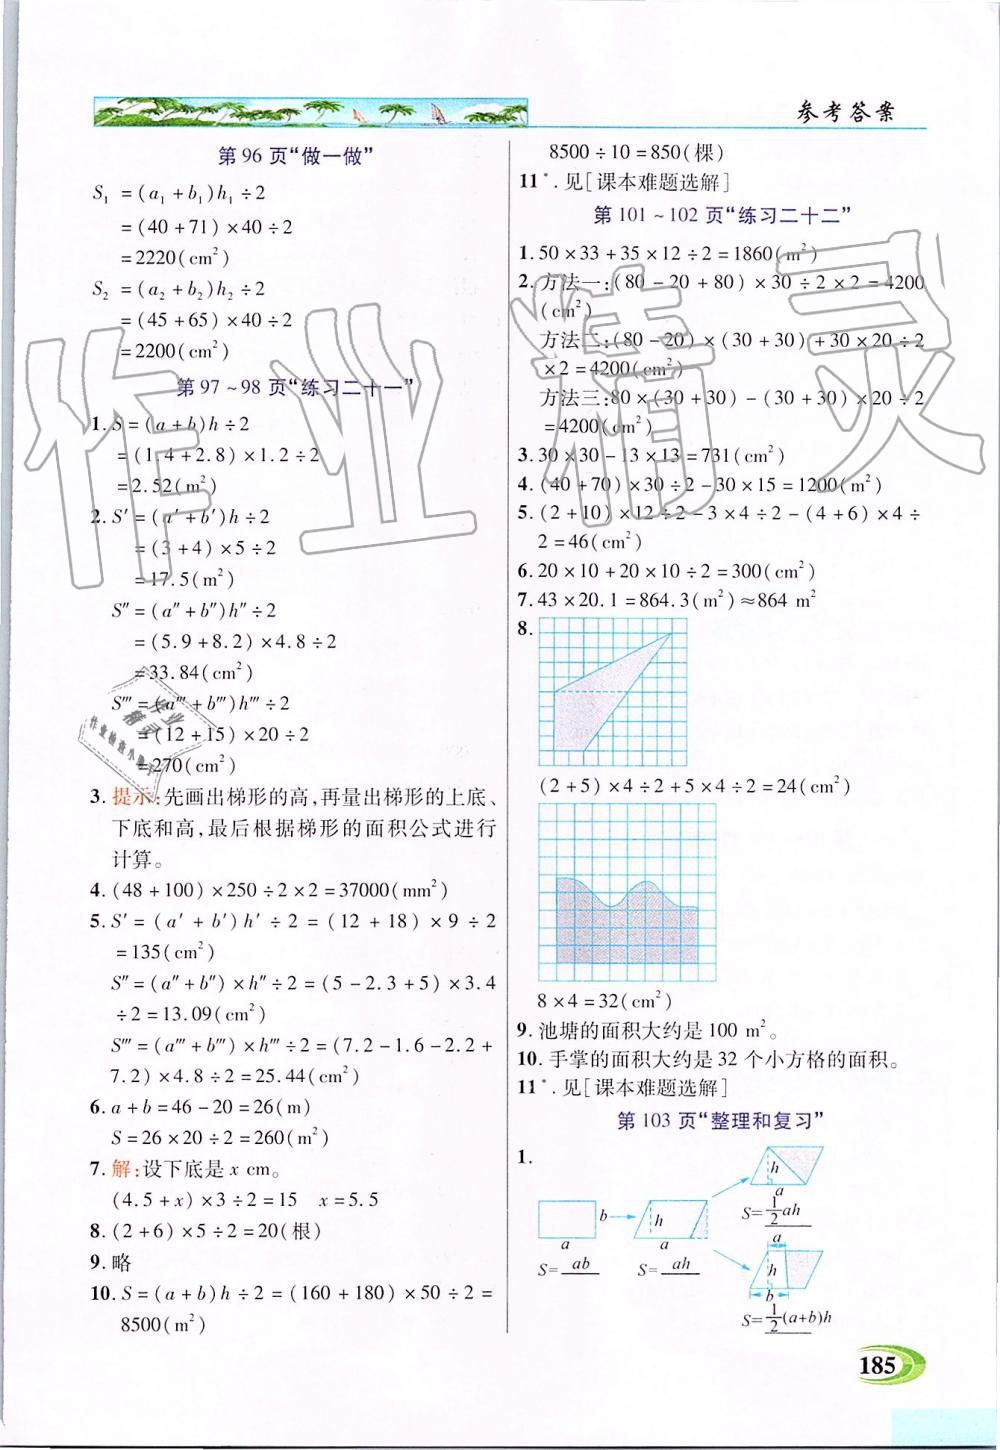 参考答案
第96页“做一做”
S₁ =(a₁+b₁)h₁÷2
=(40+71)×40÷2
=2220(cm²)
S₂ =(a₂+b₂)h₂÷2
=(45+65)×40÷2
=2200(cm²)
第97~98页“练习二十一”
1. S=(a+b)h÷2
=(1.4+2.8)×1.2÷2
=2.52(m²)
2. S′=(a′+b′)h÷2
=(3+4)×5÷2
=17.5(m²)
S″=(a″+b″)h″÷2
=(5.9+8.2)×4.8÷2
=33.84(cm²)
S‴=(a‴+b‴)h‴÷2
=(12+15)×20÷2
=270(cm²)
3. 提示:先画出梯形的高,再量出梯形的上底、
下底和高,最后根据梯形的面积公式进行
计算。
4. (48+100)×250÷2×2=37000(mm²)
5. S′=(a′+b′)h′÷2=(12+18)×9÷2
=135(cm²)
S″=(a″+b″)×h″÷2=(5-2.3+5)×3.4
÷2=13.09(cm²)
S‴=(a‴+b‴)×h‴÷2=(7.2-1.6-2.2+
7.2)×4.8÷2=25.44(cm²)
6. a+b=46-20=26(m)
S=26×20÷2=260(m²)
7. 解:设下底是x cm。
(4.5+x)×3÷2=15 x=5.5
8. (2+6)×5÷2=20(根)
9. 略
10. S=(a+b)h÷2=(160+180)×50÷2=
8500(m²)
8500÷10=850(棵)
11*. 见[课本难题选解]
第101~102页“练习二十二”
1. 50×33+35×12÷2=1860(m²)
2. 方法一:(80-20+80)×30÷2×2=4200
(cm²)
方法二:(80-20)×(30+30)+30×20÷2
×2=4200(cm²)
方法三:80×(30+30)-(30+30)×20÷2
=4200(cm²)
3. 30×30-13×13=731(cm²)
4. (40+70)×30÷2-30×15=1200(m²)
5. (2+10)×12÷2-3×4÷2-(4+6)×4÷
2=46(cm²)
6. 20×10+20×10÷2=300(cm²)
7. 43×20.1=864.3(m²)≈864 m²
8.
(2+5)×4÷2+5×4÷2=24(cm²)
8×4=32(cm²)
9. 池塘的面积大约是100 m²。
10. 手掌的面积大约是32个小方格的面积。
11*. 见[课本难题选解]
第103页“整理和复习”
1.
h
a
S=½ah
b
a
S=ab
h
a
S=ah
a
h
b
S=½(a+b)h
185
作业精灵
作业精灵
作业检查小助手